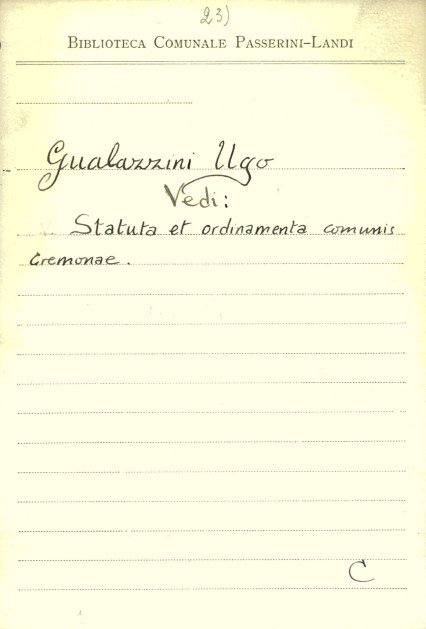 23)
BIBLIOTECA COMUNALE PASSERINI-LANDI
Gualazzini Ugo
Vedi:
Statuta et ordinamenta comunis
Cremonae.
C